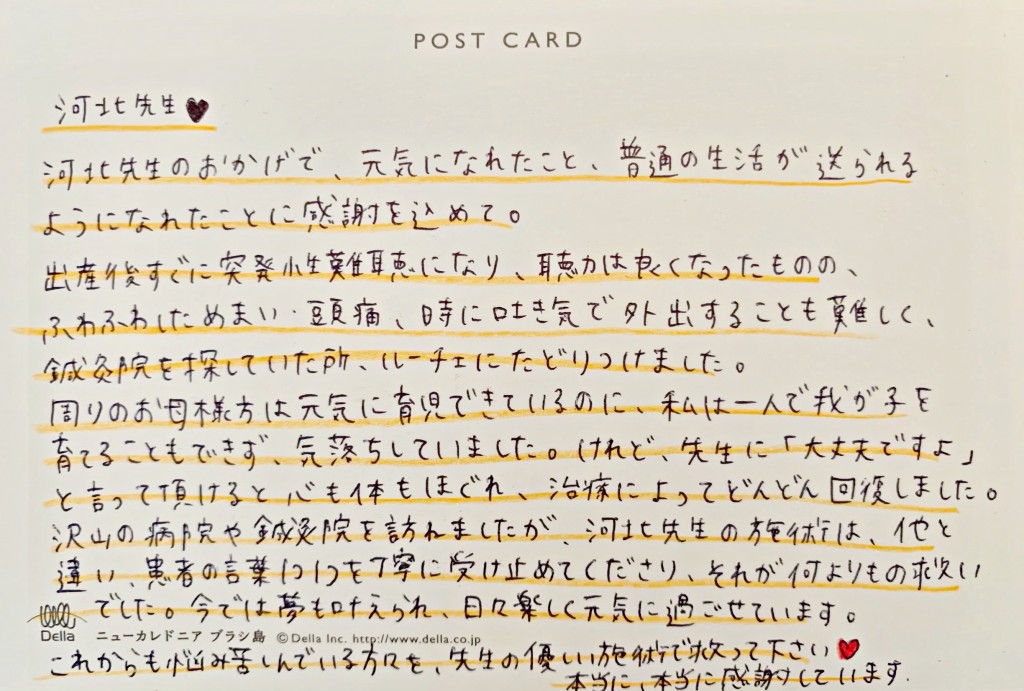 POST CARD
河北先生♥
河北先生のおかげで、元気になれたこと、普通の生活が送られる
ようになれたことに感謝を込めて。
出産後すぐに突発性難聴になり、聴力は良くなったものの、
ふわふわしためまい・頭痛、時に吐き気で外出することも難しく、
鍼灸院を探していた所、ルーチェにたどりつけました。
周りのお母様方は元気に育児できているのに、私は一人で我が子を
育てることもできず、気落ちしていました。けれど、先生に「大丈夫ですよ」
と言って頂けると心も体もほぐれ、治療によってどんどん回復しました。
沢山の病院や鍼灸院を訪れましたが、河北先生の施術は、他と
違い、患者の言葉1つ1つを丁寧に受け止めてくださり、それが何よりもの救い
でした。今では夢も叶えられ、日々楽しく元気に過ごせています。
Della ニューカレドニア ブラシ島 ©Della Inc. http://www.della.co.jp
これからも悩み苦しんでいる方々を、先生の優しい施術で救って下さい♥
本当に、本当に感謝しています.